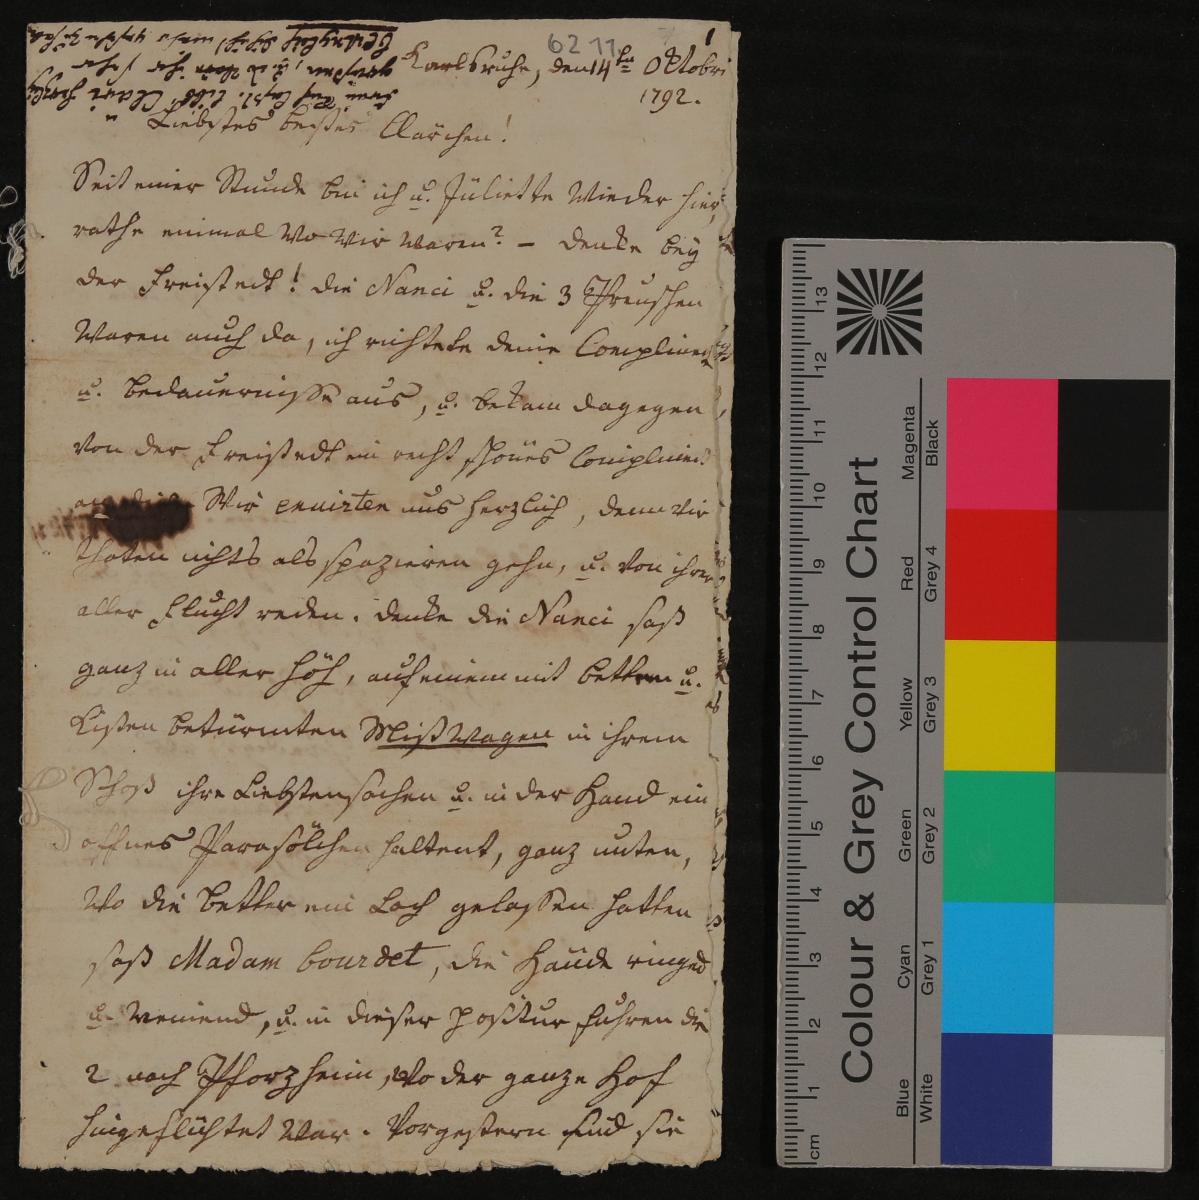 6211
1
Karlsruhe, den 14ten Octobri
1792.
Liebstes bestes Clärchen!
Seit einer Stunde bin ich u. Juliette wieder hier,
rathe einmal wo wir waren? – denke bey
der Freistedt! die Nanci u. die 3 Preuschen
waren auch da, ich richtete deine Compliment
u. bedauernisse aus, u. bekam dagegen
von der Freistedt ein recht schönes Compliment
Wir ennirten uns herzlich, denn wir
thaten nichts als spazieren gehn, u. von ihrer
aller Flucht reden. denke die Nanci saß
ganz in aller Höh, auf einem mit Betten u.
Kisten betürmten Mistwagen in ihrem
Schoß ihre Liebstensachen u. in der Hand ein
offnes Parasölchen haltent, ganz unten,
wo die Better ein Loch gelassen hatten
saß Madam bourdet, die Hände ringed
u. weinend, u. in dieser positur fuhren die
2 nach Pforzheim, wo der ganze Hof
hingeflüchtet war. Vorgestern sind sie
Colour & Grey Control Chart
Blue Cyan Green Yellow Red Magenta
White Grey 1 Grey 2 Grey 3 Grey 4 Black
cm 1 2 3 4 5 6 7 8 9 10 11 12 13